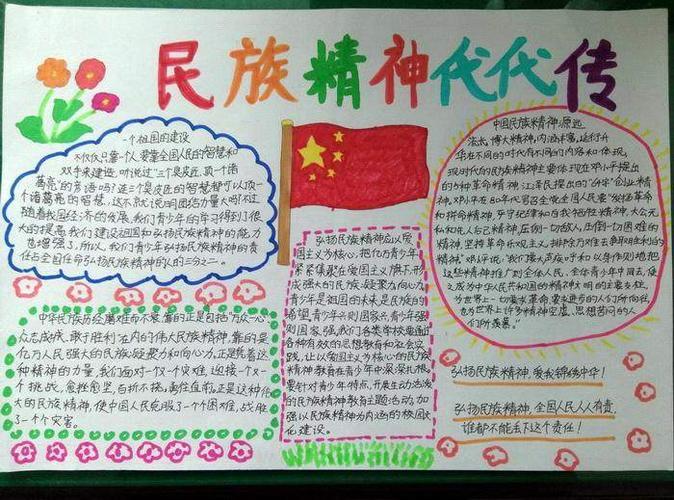 民族精神代代传
一个祖国的建设
不仅仅只靠一个人,要靠全国人民的智慧和
双手来建造,听说过“三个臭皮匠,顶一个诸
葛亮”的旁语吗?连三个臭皮匠的智慧都可以顶一
个诸葛亮的智慧,这不就说明团结力量大吗?不过
随着我国经济的发展,我们青少年的学习得到了很
大的提高,我们建设祖国和弘扬民族精神的能力
也增强了,所以,我们青少年弘扬民族精神的责
任占全国任命弘扬民族精神的人的三分之二。
中国民族精神,源远
流长,博大精深,内涵丰富,延行升
华在不同的时代有不同的内容和体现,
现时代的民族精神主要体现在邓小平提出
的5种革命精神,江泽民提出的“64字”创业精
神,邓小平在80年代号召全党全国人民要“发扬革命
和拼命精神,严守纪律和自我牺牲精神,大公无
私和先人后己精神,压倒一切敌人,压倒一切困难的
精神,坚持革命乐观主义,排除万难去争取胜利的
精神”邓评说,“我们要大声疾呼和以身作则地把
这些精神推广到全体人民,全体青少年中间去,使
之成为中华人民共和国的精神文明的主要支柱,
为世界上一切要求革命,要求进步的人们所向往,
也为世界上许多精神空虚,思想苦闷的人
们所羡慕。”
弘扬民族精神应以爱
国主义为核心,把亿万青少年
紧紧集聚在爱国主义旗下,形
成强大的民族凝聚力向心力
青少年是祖国的未来是民族的
希望,青少年兴则国家兴,青少年强
则国家强,我们各类学校要通过
各种有效的思想教育和社会实
践,让以爱国主义为核心的民族
精神教育在青少年中深深扎根,
要针对青少年特点,开展生动活泼
的民族精神教育主题活动,加
强以民族精神为内涵的校园文
化建设。
中华民族历经磨难而不衰,靠的正是包括“万众一心
众志成城,敢于胜利”在内的伟大民族精神,靠的是
亿万人民强大的民族凝聚力和向心力,正是凭着这
种精神的力量,我们面对一次次灾难,迎接一次
个挑战,愈挫愈坚,百折不挠,勇往直前,正是这种伟
大的民族精神,使中国人民克服了一个个困难,战胜
了一个个灾害。
弘扬民族精神,爱我锦绣中华!
弘扬民族精神,全国人民人人有责,
谁都不能丢下这个责任!